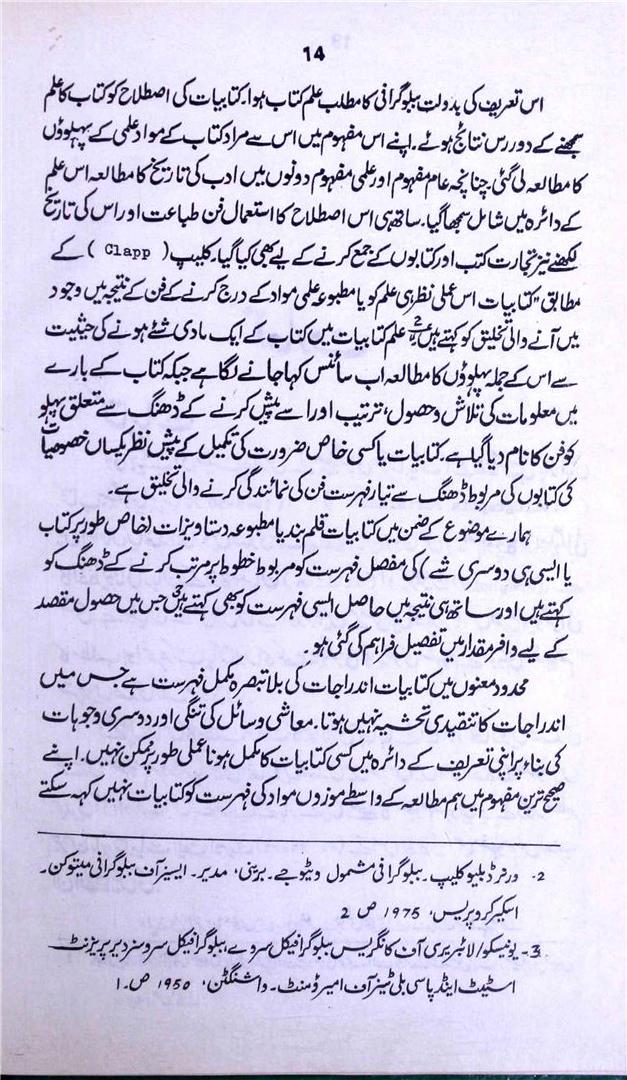 14
اس تعریف کی بدولت ببلوگرافی کا مطلب علم کتاب ہوا۔ کتابیات کی اصطلاح کو کتاب کا علم
سمجھنے کے دور رس نتائج ہوئے۔ اپنے اس مفہوم میں اس سے مراد کتاب کے مواد علمی کے پہلوؤں
کا مطالعہ لی گئی۔ چنانچہ عام مفہوم اور علمی مفہوم دونوں میں ادب کی تاریخ کا مطالعہ اس علم
کے دائرہ میں شامل سمجھا گیا۔ ساتھ ہی اس اصطلاح کا استعمال فن طباعت اور اس کی تاریخ
لکھنے نیز تجارت کتب اور کتابوں کے جمع کرنے کے لیے بھی کیا گیا۔ کلیپ (Clapp) کے
مطابق "کتابیات اس عملی نظری علم کو یا مطبوعہ علمی مواد کے درج کرنے کے فن کے نتیجہ میں وجود
میں آنے والی تخلیق کو کہتے ہیں"2۔ علم کتابیات میں کتاب کے ایک مادی شئے ہونے کی حیثیت
سے اس کے جملہ پہلوؤں کا مطالعہ اب سائنس کہا جانے لگا ہے جبکہ کتاب کے بارے
میں معلومات کی تلاش و حصول، ترتیب اور اسے پیش کرنے کے ڈھنگ سے متعلق پہلو
کو فن کا نام دیا گیا ہے۔ کتابیات یا کسی خاص ضرورت کی تکمیل کے پیش نظر یکساں خصوصیات
کی کتابوں کی مربوط ڈھنگ سے تیار فہرست فن کی نمائندگی کرنے والی تخلیق ہے۔
ہمارے موضوع کے ضمن میں کتابیات قلم بند یا مطبوعہ دستاویزات (خاص طور پر کتاب
یا ایسی ہی دوسری شے) کی مفصل فہرست کو مربوط خطوط پر مرتب کرنے کے ڈھنگ کو
کہتے ہیں اور ساتھ ہی نتیجہ میں حاصل ایسی فہرست کو بھی کہتے ہیں3 جس میں حصول مقصد
کے لیے وافر مقدار میں تفصیل فراہم کی گئی ہو۔
محدود معنوں میں کتابیات اندراجات کی بلا تبصرہ مکمل فہرست ہے جس میں
اندراجات کا تنقیدی تحشیہ نہیں ہوتا۔ معاشی وسائل کی تنگی اور دوسری وجوہات
کی بناء پر اپنی تعریف کے دائرہ میں کسی کتابیات کا مکمل ہونا عملی طور پر ممکن نہیں۔ اپنے
صحیح ترین مفہوم میں ہم مطالعہ کے واسطے موزوں مواد کی فہرست کو کتابیات نہیں کہہ سکتے
2- ورنر ڈبلیو کلیپ۔ ببلوگرافی مشمول ویٹو جے۔ برینی، مدیر۔ ایسیز آف ببلوگرافی میٹوکن۔
اسکیر کرو پریس، 1975 ص 2
3- یونیسکو/لائبریری آف کانگریس ببلوگرافیکل سروے، ببلوگرافیکل سروسز دیر پریزنٹ
اسٹیٹ اینڈ پاسی بلی ٹیز آف امپروومنٹ۔ واشنگٹن، 1950 ص۔ 1